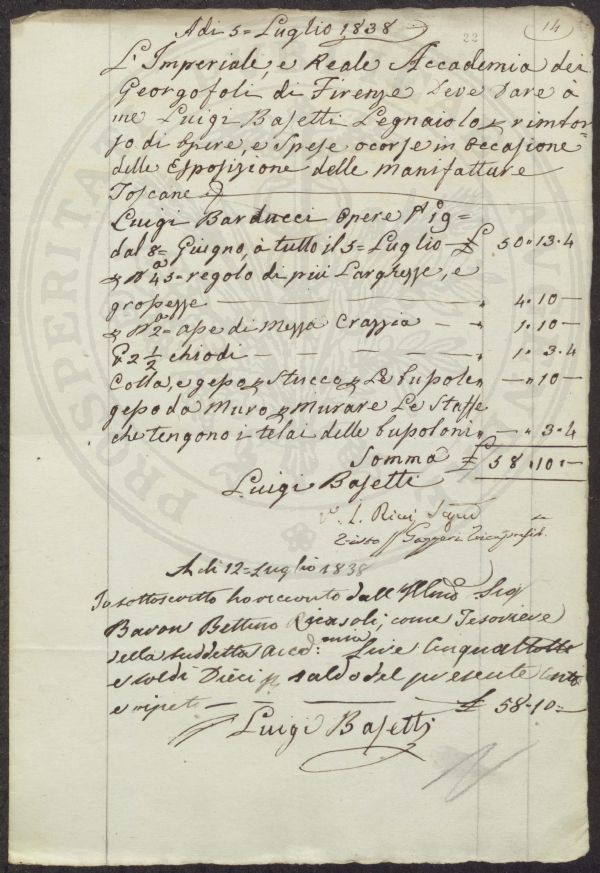 22
14
Adi 5= Luglio 1838
L'Imperiale, e Reale Accademia dei
Georgofoli di Firenze Deve Dare a
me Luigi Basetti Legnaiolo p rimbor=
so di Opere, e Spese ocorse in Occasione
delle Esposizione delle Manifatture
Toscane
Luigi Barducci Opere N° 19=
dal 8= Giugno, à tutto il 5= Luglio - £ 50 " 13 " 4
p N° 45= regolo di più Larghesse, e
grossesse — " 4 " 10 —
p N° 2= ase di Messa Crassia — " 1 " 10 —
£ 2 1/2 chiodi — " 1 " 3 " 4
Colla, e geso p Stucco p Le Cupole " — " 10 —
geso da Muro p Murare Le Staffe
che tengono i telai delle Cupoloni " — " 3 " 4
Somma £ 58 " 10 " —
Luigi Basetti
V. L. Ricci
Visto
A di 12= Luglio 1838
Io sottoscritto ho ricevuto dall'Illmo Sig
Baron Bettino Ricasoli, come Tesoriere
della suddetta Accad:mia Lire Cinquantotto
e soldi Dieci p saldo del presente Conto
e — £ 58 - 10 =
Luigi Basetti
PROSPERITATI AUGENDAE